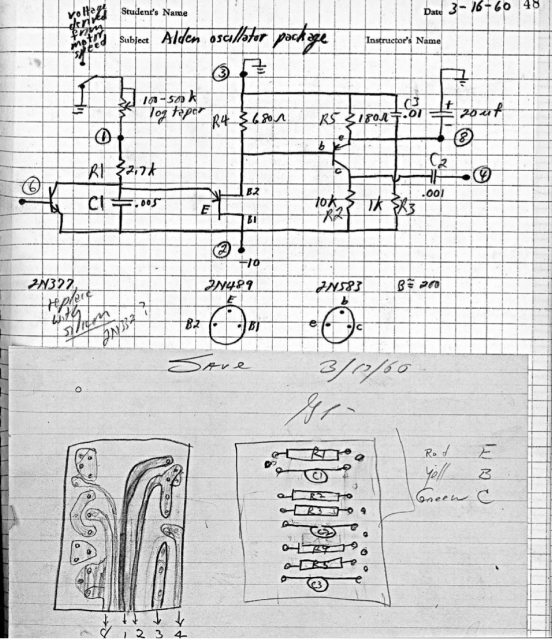 voltage
derived
from
motor
speed
Student's Name
Date 3-16-60 48
Subject Alden oscillator package Instructor's Name
3
100-500k
log taper
R4 680Ω
R5 180Ω
C3
.01
+
20 uf
1
8
e
b
c
R1 2.7k
C2
4
.001
6
C1 .005
E
B2
B1
10k
R2
1k R3
2
-10
2N377
2N489
2N583
B≅200
replace
with
silicon
2N332?
E
B2 B1
b
e c
Save 3/17/60
R1
C1
R2
R3
C2
R4
R5
C3
Red E
Yell B
Green C
8 1 2 3 4